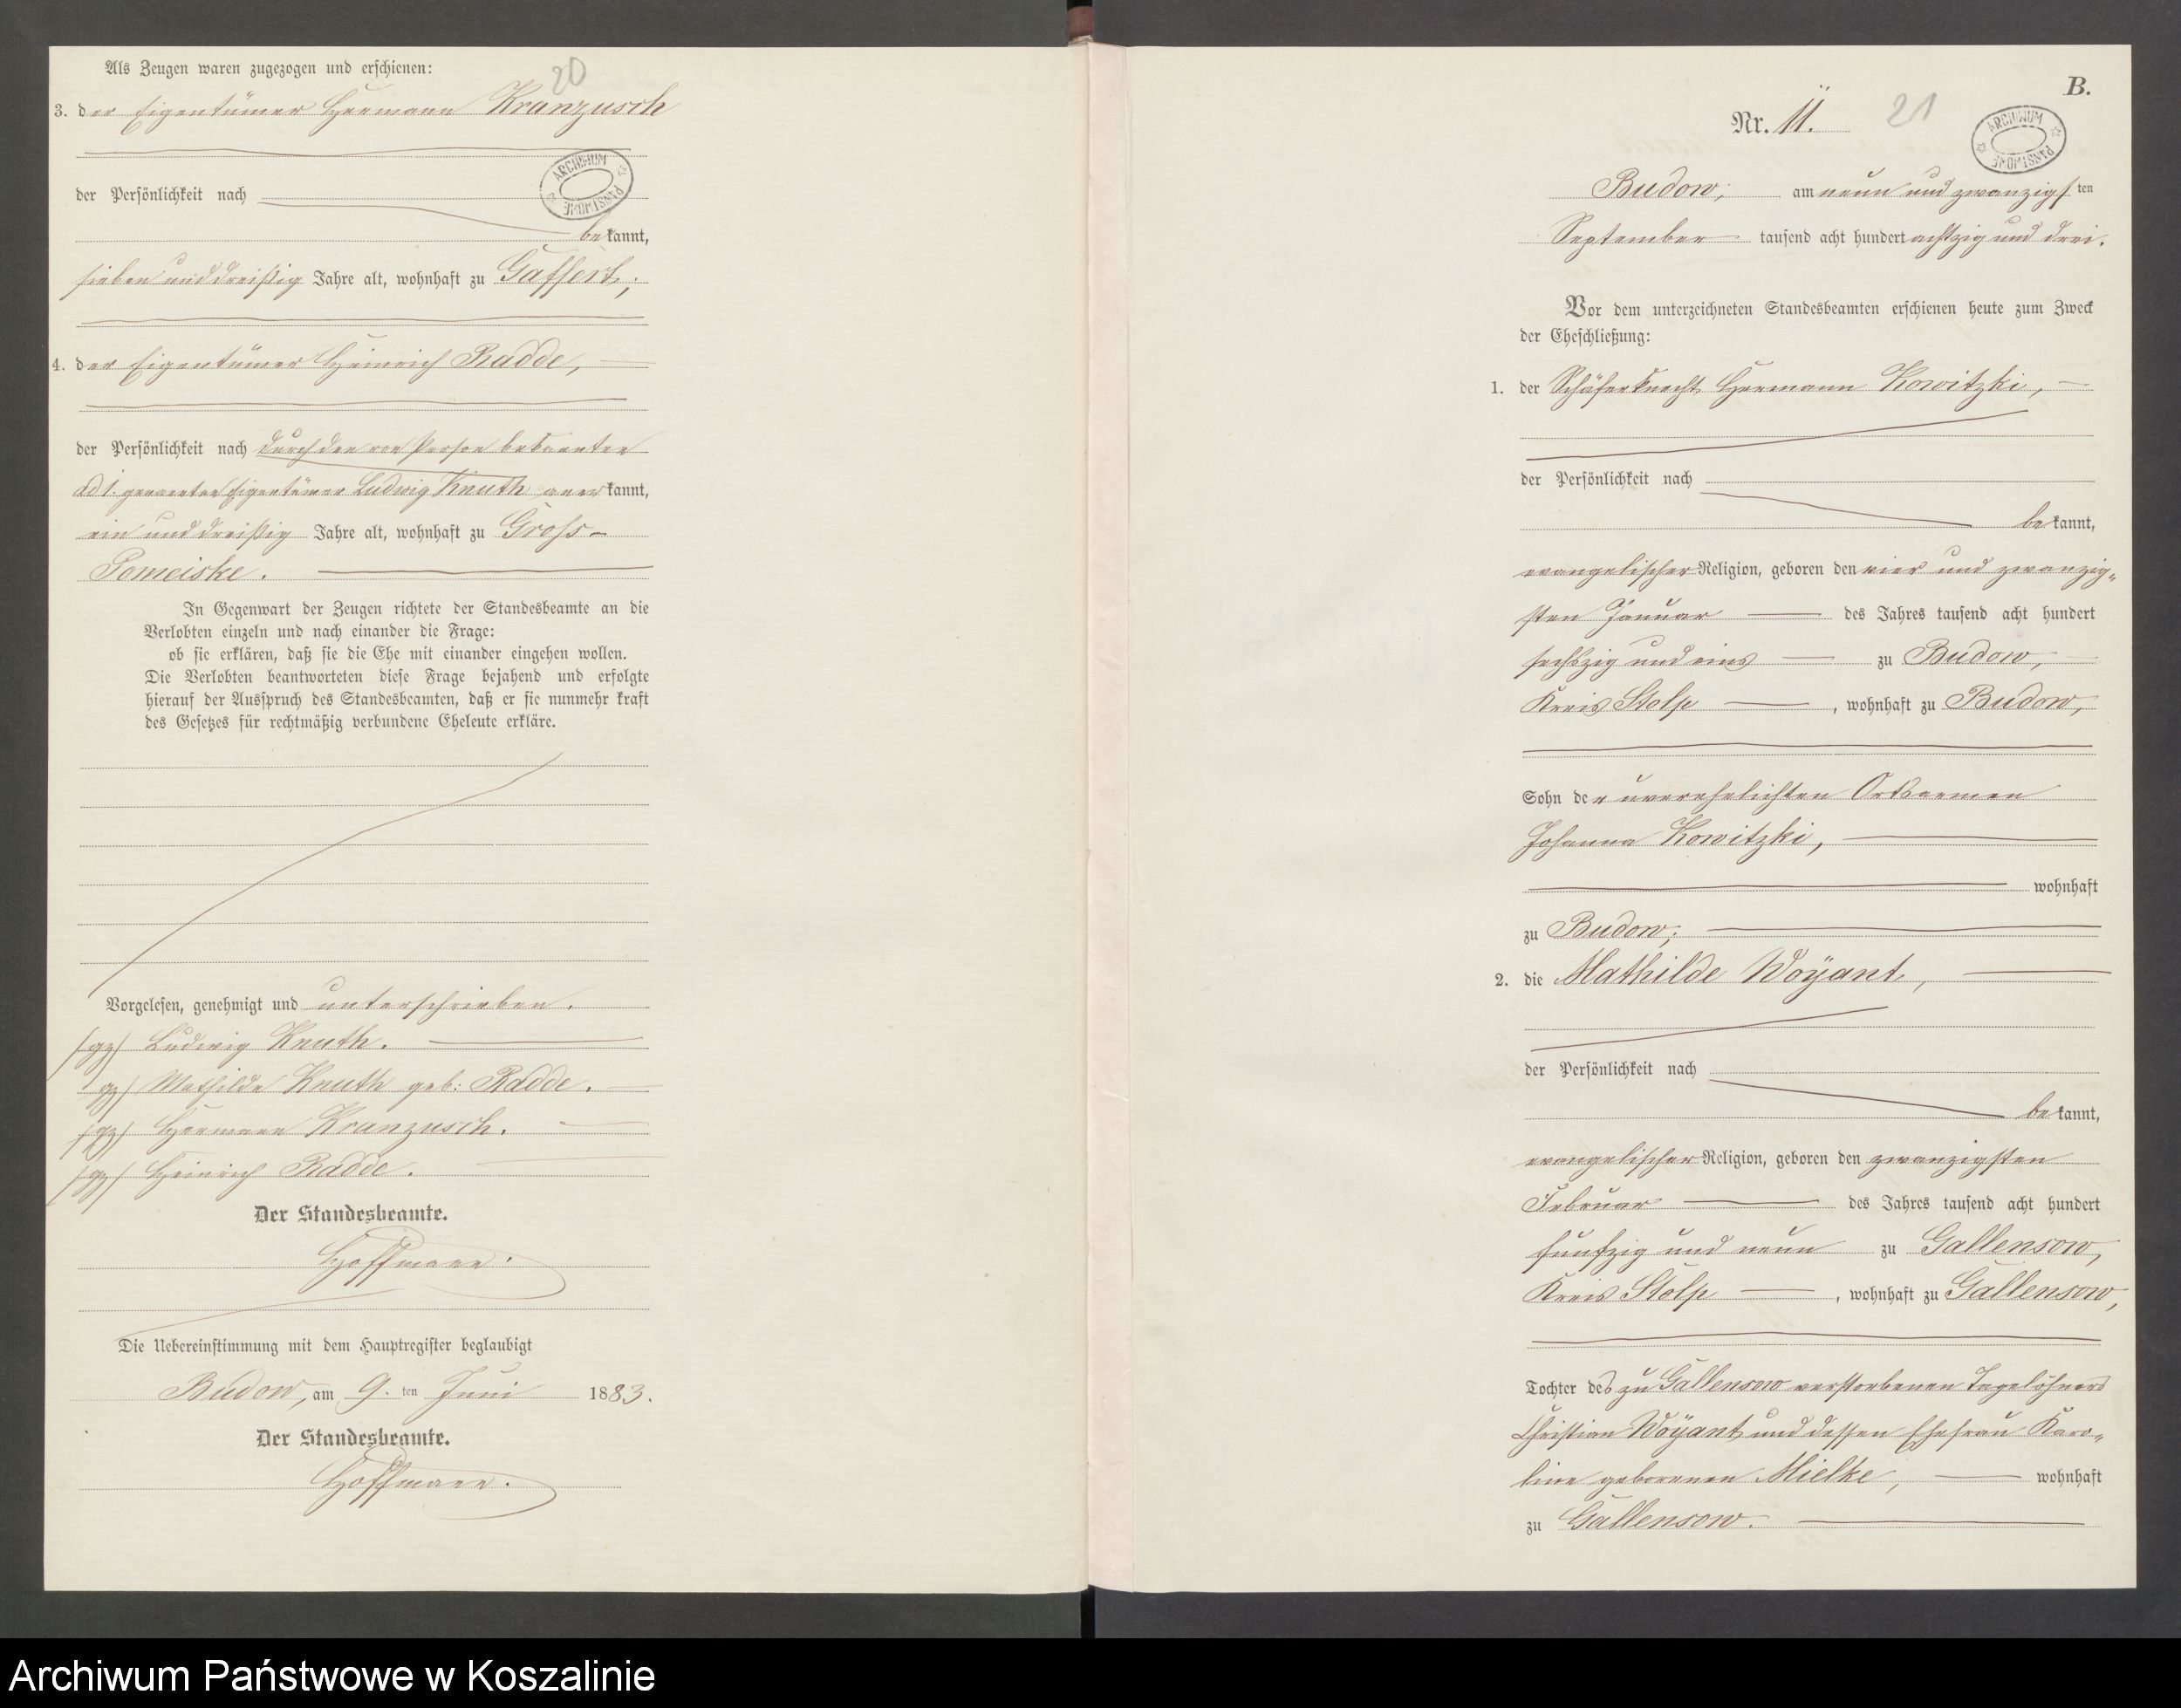 Als Zeugen waren zugezogen und erschienen:
20
3. der Eigentümer Hermann Kranzusch
ARCHIWUM PAŃSTWOWE
der Persönlichkeit nach
bekannt,
sieben und dreißig Jahre alt, wohnhaft zu Gaffert,
4. der Eigentümer Heinrich Radde,
der Persönlichkeit nach durch den von Person bekannten
ad 1. genannten Eigentümer Ludwig Knuth anerkannt,
ein und dreißig Jahre alt, wohnhaft zu Gross-
Pomeiske.
In Gegenwart der Zeugen richtete der Standesbeamte an die
Verlobten einzeln und nach einander die Frage:
ob sie erklären, daß sie die Ehe mit einander eingehen wollen.
Die Verlobten beantworteten diese Frage bejahend und erfolgte
hierauf der Ausspruch des Standesbeamten, daß er sie nunmehr kraft
des Gesetzes für rechtmäßig verbundene Eheleute erkläre.
Vorgelesen, genehmigt und unterschrieben.
(gz) Ludwig Knuth.
(gz) Mathilde Knuth geb: Radde.
(gz) Hermann Kranzusch.
(gz) Heinrich Radde.
Der Standesbeamte.
Hoffmann.
Die Uebereinstimmung mit dem Hauptregister beglaubigt
Budow, am 9. ten Juni 1883.
Der Standesbeamte.
Hoffmann.
B.
Nr. 11. 21
ARCHIWUM PAŃSTWOWE
Budow, am neun und zwanzigsten
September tausend acht hundert achtzig und drei.
Vor dem unterzeichneten Standesbeamten erschienen heute zum Zweck
der Eheschließung:
1. der Schäferknecht Hermann Kowitzki,
der Persönlichkeit nach
bekannt,
evangelischer Religion, geboren den vier und zwanzig-
sten Januar des Jahres tausend acht hundert
sechszig und eins zu Budow,
Kreis Stolp, wohnhaft zu Budow,
Sohn der unverehelichten Ortsarmen
Johanna Kowitzki,
wohnhaft
zu Budow;
2. die Mathilde Woÿant,
der Persönlichkeit nach
bekannt,
evangelischer Religion, geboren den zwanzigsten
Februar des Jahres tausend acht hundert
fünfzig und neun zu Gallensow,
Kreis Stolp, wohnhaft zu Gallensow,
Tochter des zu Gallensow verstorbenen Tagelöhners
Christian Woÿant und dessen Ehefrau Karo-
line geborenen Mielke, wohnhaft
zu Gallensow.
Archiwum Państwowe w Koszalinie